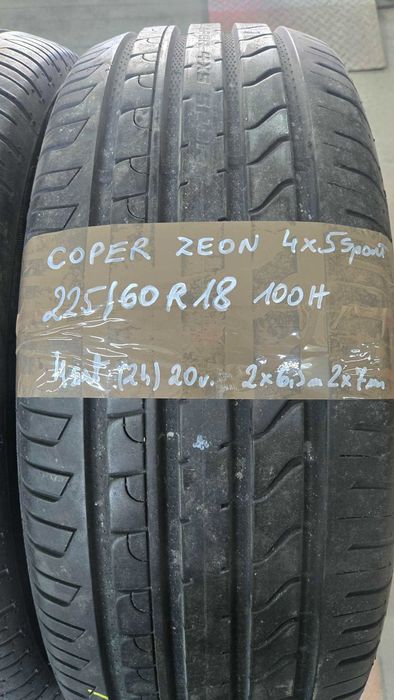 COPER ZEON 4x5 Sport
225/60 R 18 100H
4szt (24) 20r. 2x6,5m 2x7mm